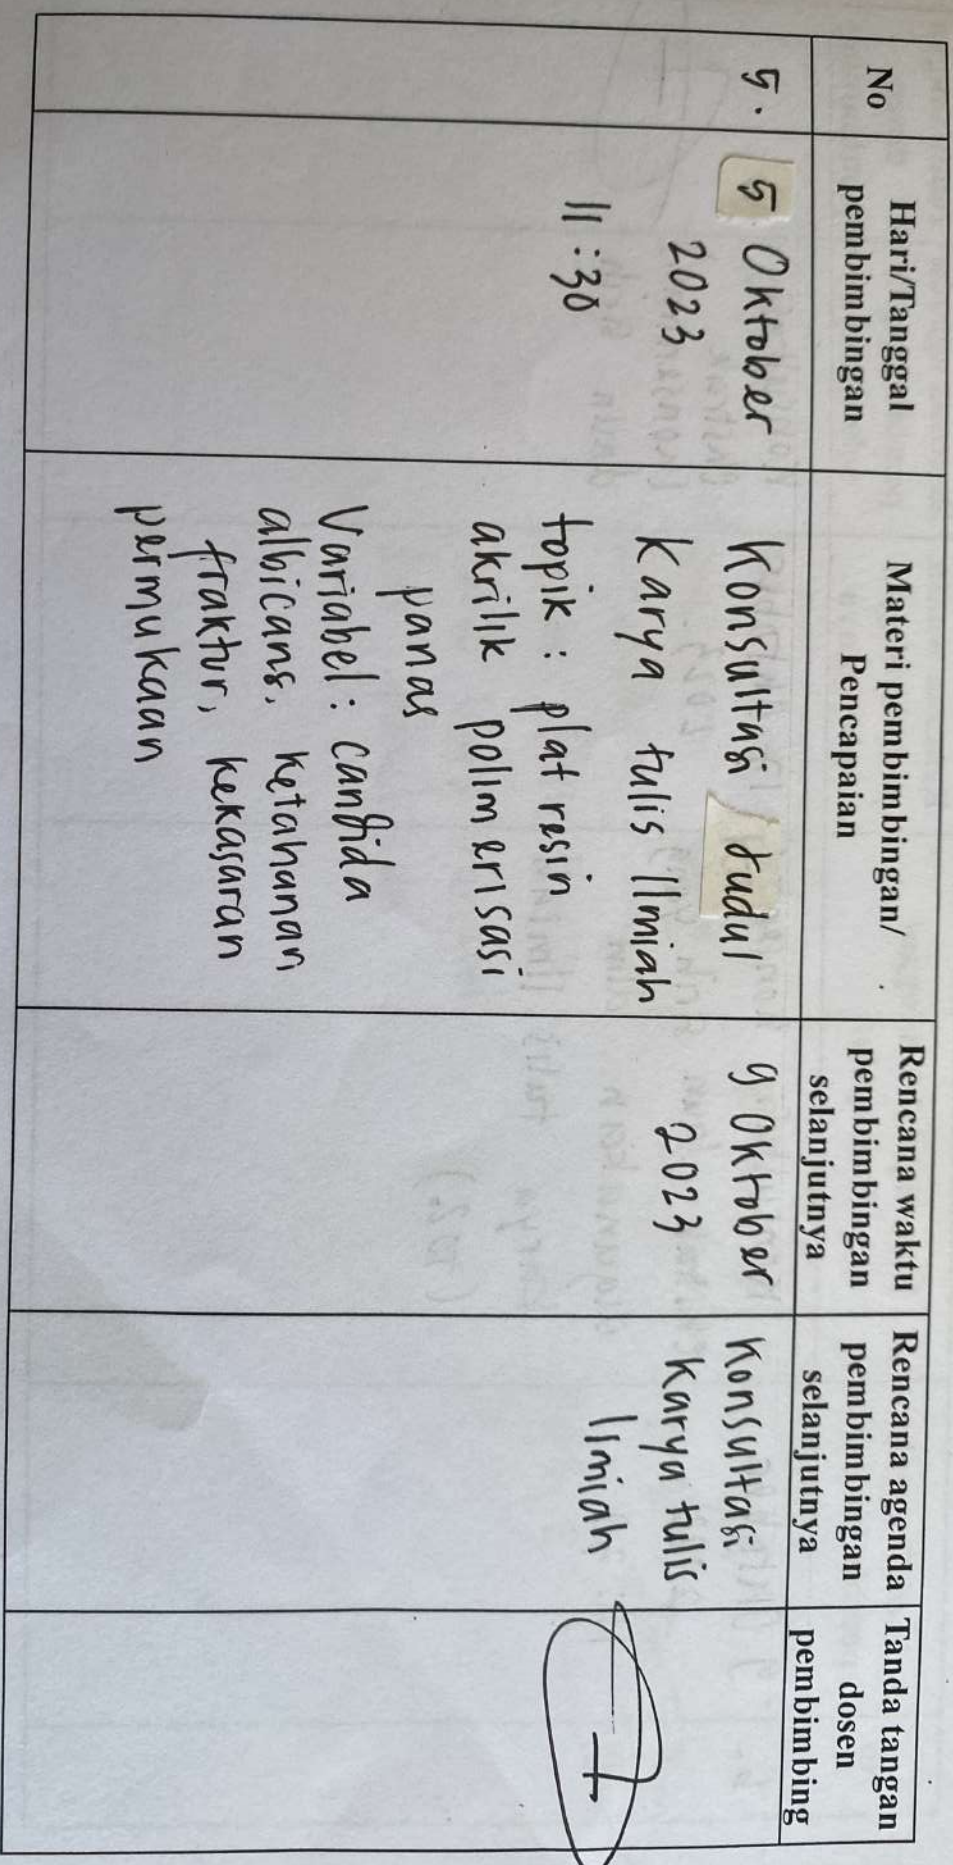 No
Hari/Tanggal
pembimbingan
Materi pembimbingan/
Pencapaian
Rencana waktu
pembimbingan
selanjutnya
Rencana agenda
pembimbingan
selanjutnya
Tanda tangan
dosen
pembimbing
5.
5 Oktober
2023
11:30
Konsultasi Judul
Karya tulis Ilmiah
topik : plat resin
akrilik polimerisasi
panas
Variabel : candida
albicans, ketahanan
fraktur, kekasaran
permukaan
9 Oktober
2023
Konsultasi
Karya tulis
Ilmiah